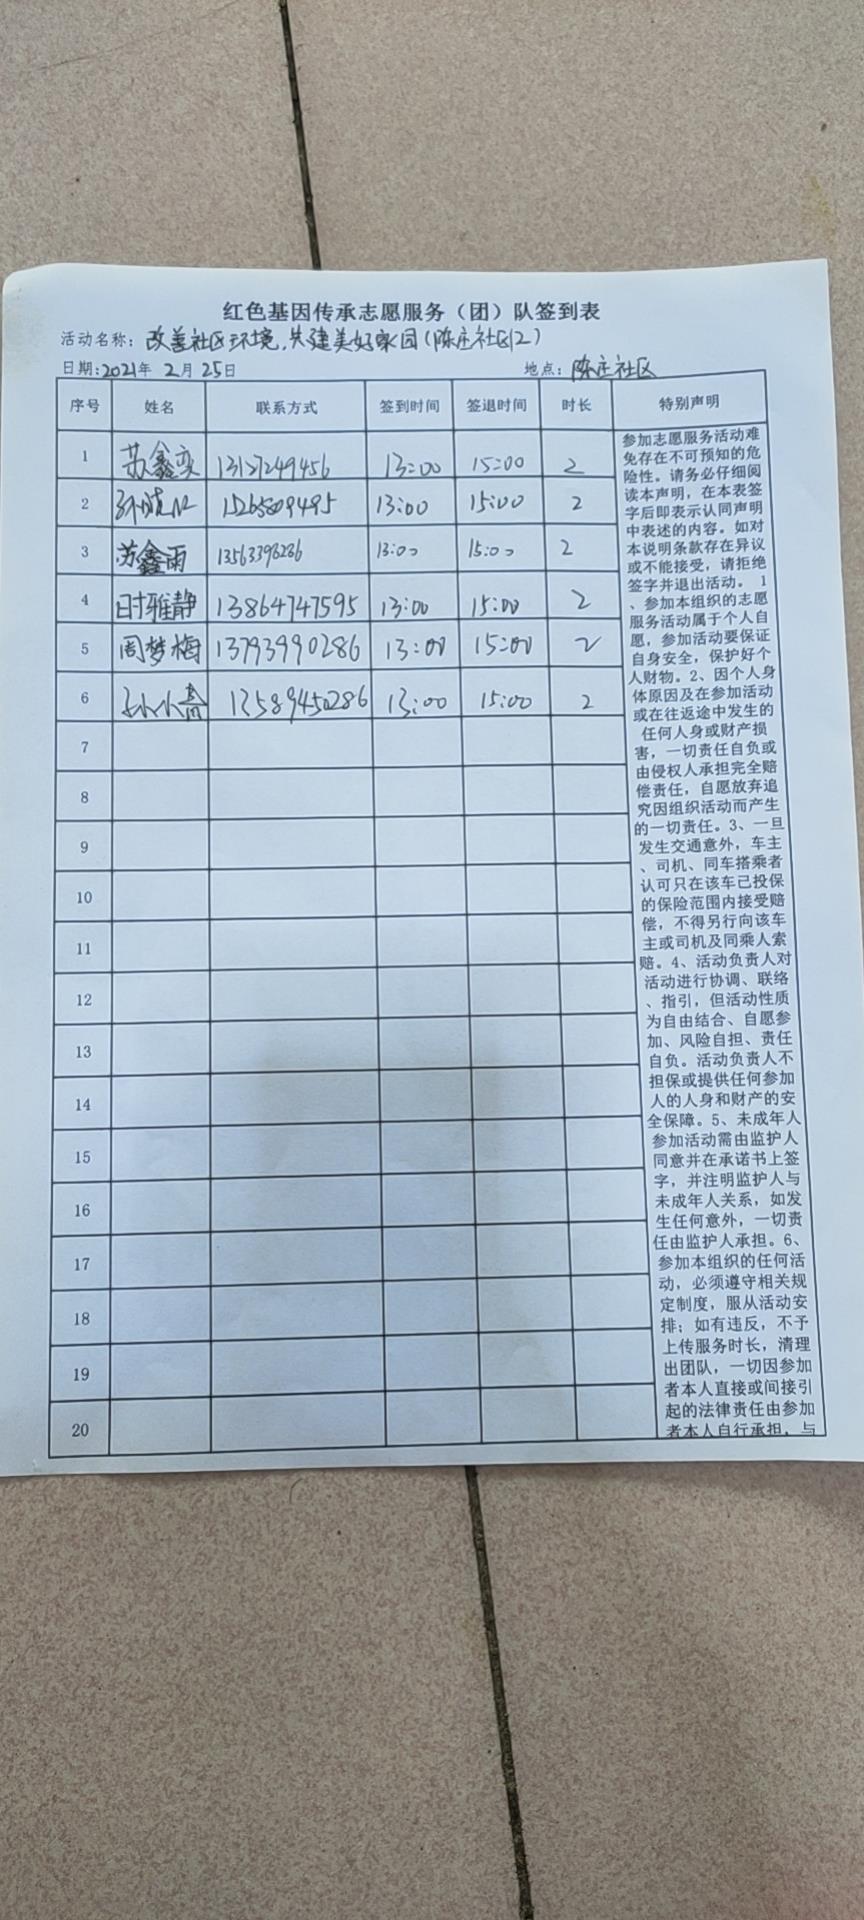 红色基因传承志愿服务（团）队签到表
活动名称：改善社区环境，共建美好家园（陈庄社区12）
日期：2021年 2月 25日 地点：陈庄社区
序号 姓名 联系方式 签到时间 签退时间 时长 特别声明
1 苏鑫奕 13127249456 13:00 15:00 2
2 15265809495 13:00 15:00 2
3 苏鑫雨 13563398286 13:00 15:00 2
4 时雅静 13864747595 13:00 15:00 2
5 周梦梅 13793990286 13:00 15:00 2
6 13589450286 13:00 15:00 2
7
8
9
10
11
12
13
14
15
16
17
18
19
20
参加志愿服务活动难
免存在不可预知的危
险性。请务必仔细阅
读本声明，在本表签
字后即表示认同声明
中表述的内容。如对
本说明条款存在异议
或不能接受，请拒绝
签字并退出活动。 1
、参加本组织的志愿
服务活动属于个人自
愿，参加活动要保证
自身安全，保护好个
人财物。2、因个人身
体原因及在参加活动
或在往返途中发生的
任何人身或财产损
害，一切责任自负或
由侵权人承担完全赔
偿责任，自愿放弃追
究因组织活动而产生
的一切责任。3、一旦
发生交通意外，车主
、司机、同车搭乘者
认可只在该车已投保
的保险范围内接受赔
偿，不得另行向该车
主或司机及同乘人索
赔。4、活动负责人对
活动进行协调、联络
、指引，但活动性质
为自由结合、自愿参
加、风险自担、责任
自负。活动负责人不
担保或提供任何参加
人的人身和财产的安
全保障。5、未成年人
参加活动需由监护人
同意并在承诺书上签
字，并注明监护人与
未成年人关系，如发
生任何意外，一切责
任由监护人承担。6、
参加本组织的任何活
动，必须遵守相关规
定制度，服从活动安
排；如有违反，不予
上传服务时长，清理
出团队，一切因参加
者本人直接或间接引
起的法律责任由参加
者本人自行承担，与